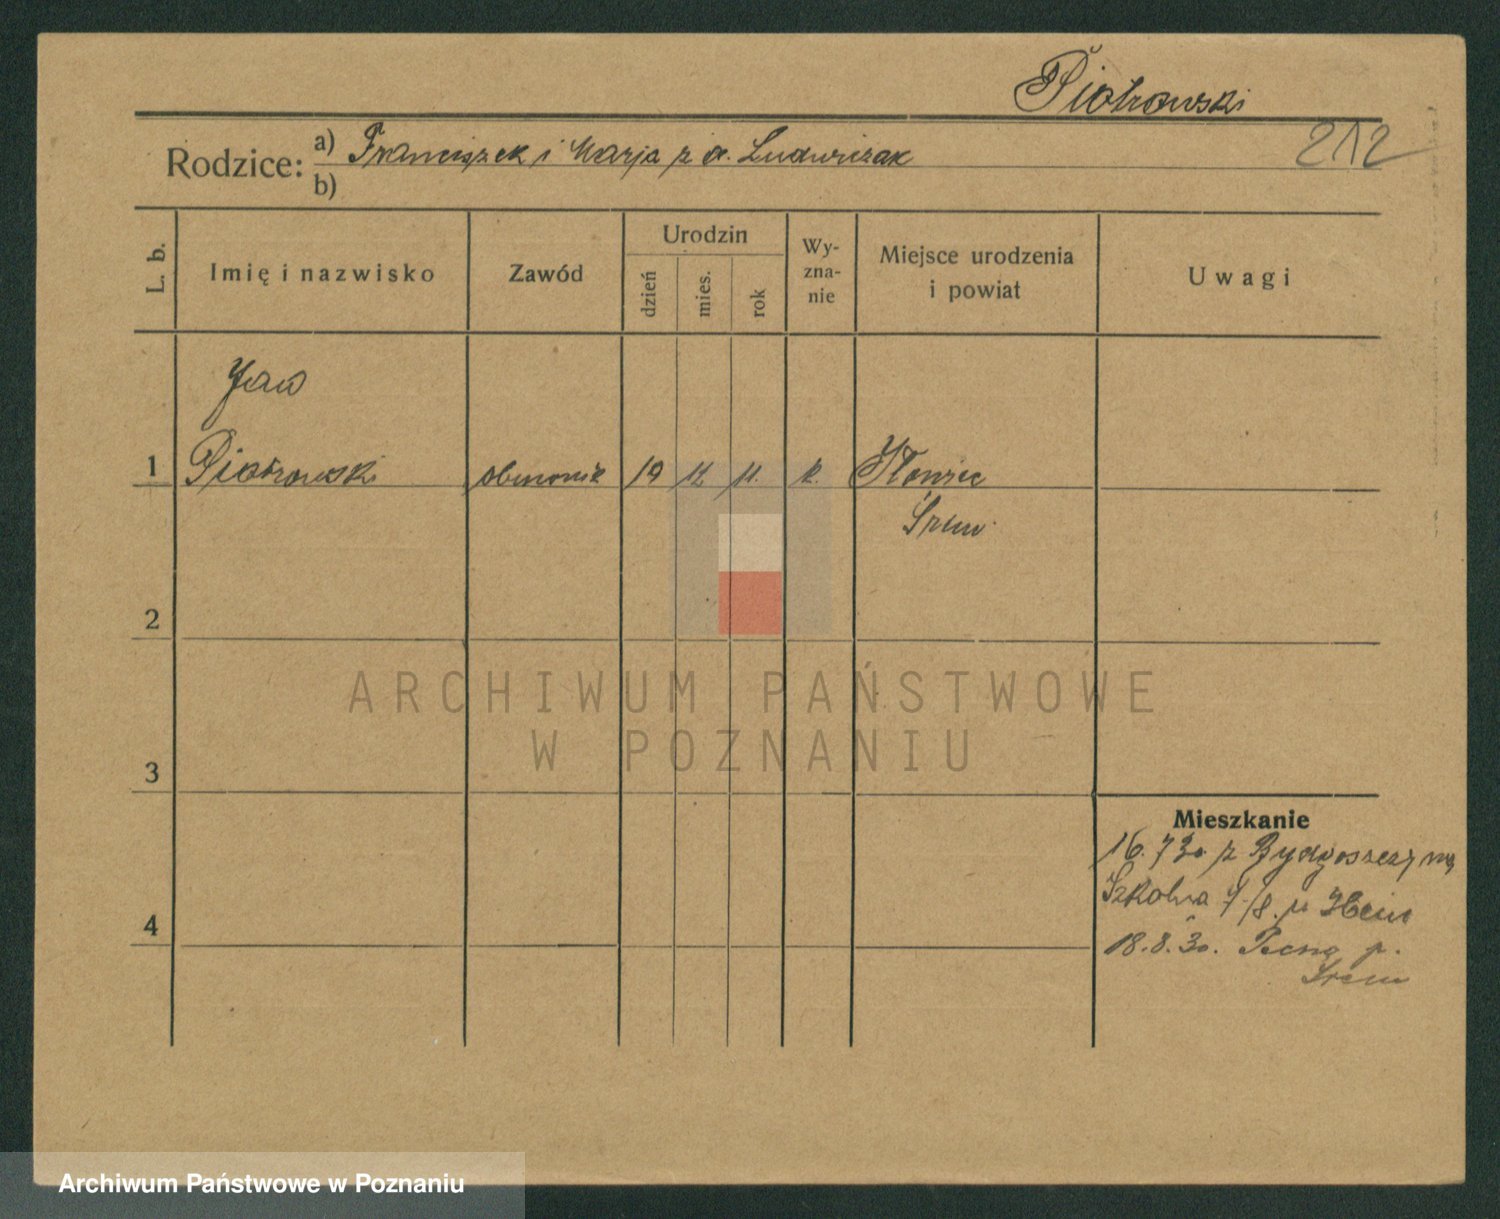 Piotrowski
212
Rodzice: a) Franciszek i Marja z d. Ludwiczak
b)
L. b.
Imię i nazwisko
Zawód
Urodzin
dzień
mies.
rok
Wy-
zna-
nie
Miejsce urodzenia
i powiat
Uwagi
Jan
1 Piotrowski 19 11. k. Iłowiec
Śrem
2
3
4
Mieszkanie
16.7 30 z Bydgoszczy
Szkolna 7/8
18.8.30. Pecna p.
Śrem
ARCHIWUM PAŃSTWOWE
W POZNANIU
Archiwum Państwowe w Poznaniu